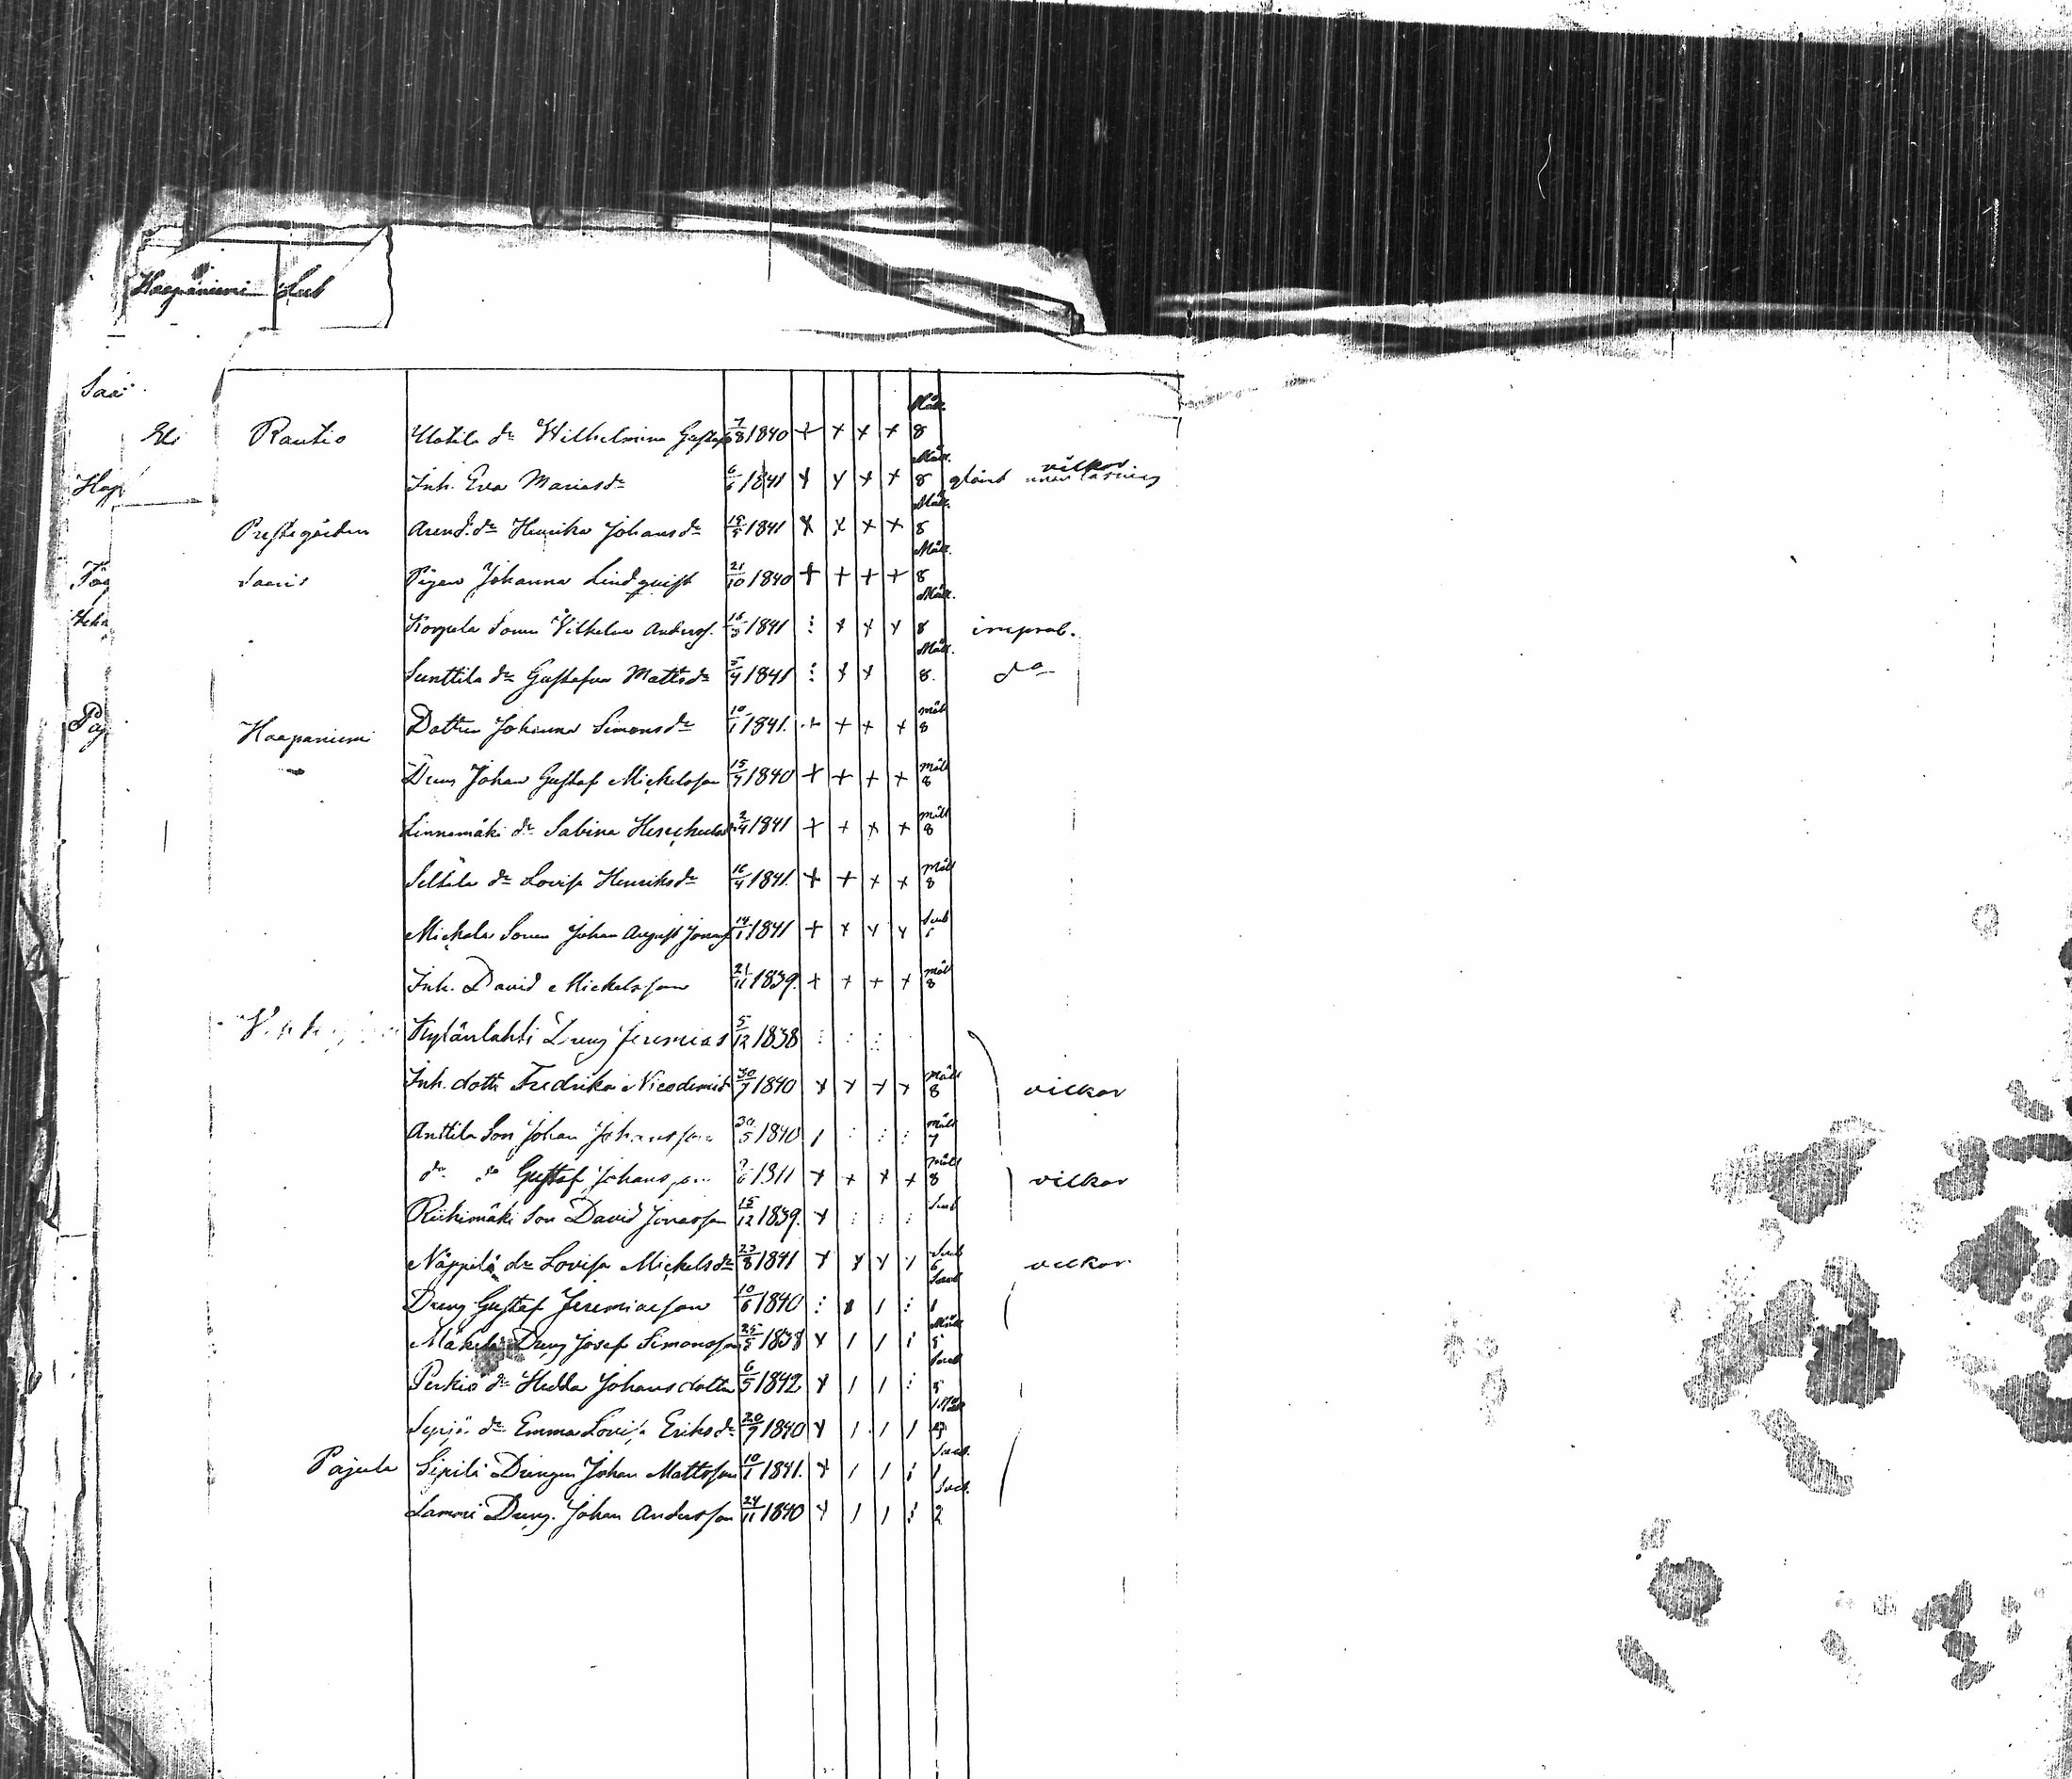 Haapaniemi Sub
Saa
Hap
Rautio Ulatila dr Wilhelmina Gustafs 7/8 1840 + + + + Mått. 8
Inh. Eva Mariasdr 6/6 1841 + + + + Mått. 8 glömt vilkor
Prestegården Arend. dr Henrika Johansdr 15/5 1841 + + + + Mått. 8
Saaris Pigan Johanna Lindquist 21/10 1840 + + + + Mått. 8
Korpela Sonen Vilhelm Anderss. 16/3 1841 ⋮ + + + Mått. 8 improb.
Sunttila dr Gustafva Mattsdr 5/4 1841 ⋮ + + Mått. 8. do
Paj
Haapaniemi Dottren Johanna Simonsdr 10/1 1841. + + + + Mått 8
Dreng Johan Gustaf Mickelsson 15/7 1840 + + + + Mått 8
Linnamäki dr Sabina 2/4 1841 + + + + Mått 8
dr Lovisa Henriksdr 16/4 1841. + + + + Mått 8
Mickola Sonen Johan August Jonass 14/1 1841 + + + + Sub
Inh. David Mickelsson 21/11 1839. + + + + Mått 8
Kylänlahti Dreng Jeremias 5/12 1838 ⋮ ⋮ ⋮
Inh. dottr Fredrika Nicodemid 30/7 1840 + + + + Mått 8 vilkor
Anttila Son Johan Johansson 30/5 1840 / ⋮ ⋮ ⋮ Mått 7
do so Gustaf Johansson + + + + Mått 8 vilkor
Riihimäki Son David Jonasson 15/12 1839. + ⋮ ⋮ ⋮ Sub
Näppilä dr Lovisa Mickelsdr 23/8 1841 + + + / Sub 6 vilkor
Dreng Gustaf Jeremiasson 10/6 1840 ⋮ / ⋮ Sub 1
Mäkelä Dreng Josef Simonsson 25/5 1838 + / / Mått
Perkiö dr Hedda Johansdotter 6/5 1842 + / / ⋮ Sub
dr Emma Lovisa Eriksdr 20/7 1840 + / / / Mått
Pajula Sipilä Drengen Johan Mattsson 10/1 1841. + / / Sub. 1
Lammi Dreng. Johan Andersson 24/11 1840 + / / ⋮ Sub. 2